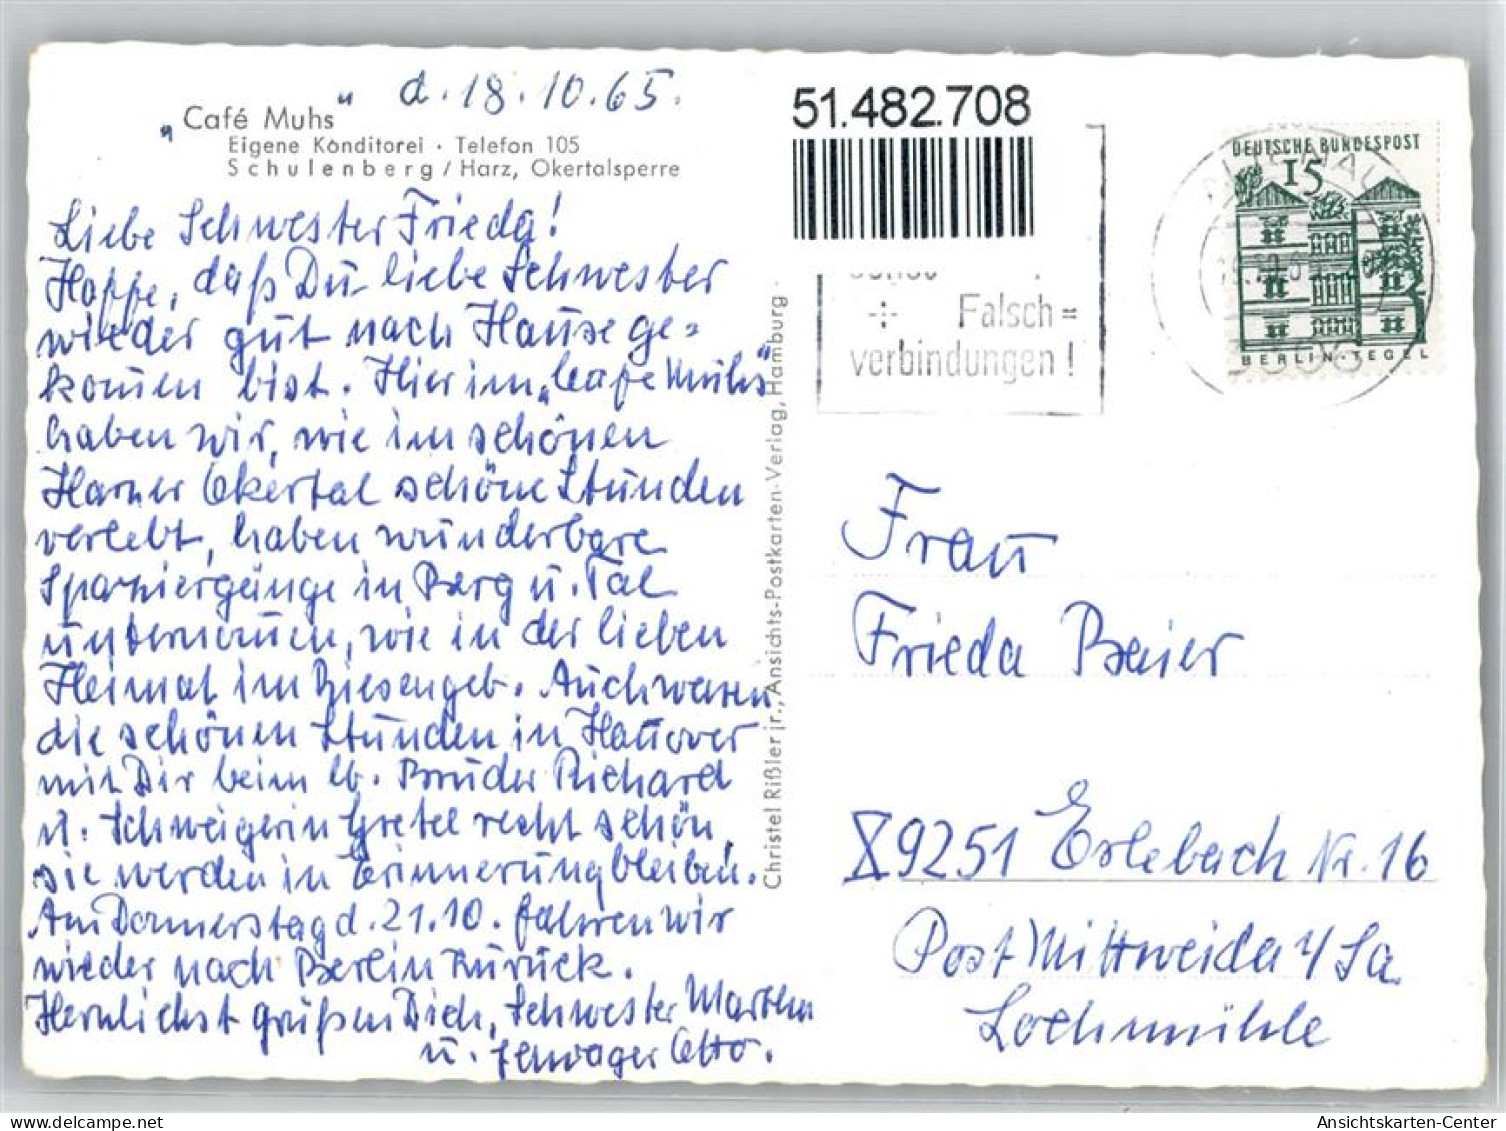 d. 18.10.65.
„Café Muhs"
Eigene Konditorei · Telefon 105
Schulenberg / Harz, Okertalsperre
Liebe Schwester Frieda!
Hoffe, daß Du liebe Schwester
wieder gut nach Hause ge=
komen bist. Hier im „Cafe Muhs"
haben wir, wie im schönen
Harzer Okertal schöne Stunden
verlebt, haben wunderbare
Spaziergänge in Berg u. Tal
unternomen, wie in der lieben
Heimat im Riesengeb. Auch waren
die schönen Stunden in Hanover
mit Dir beim lb. Bruder Richard
u. Schwägerin Gretel recht schön,
sie werden in Erinnerung bleiben.
Am Donnerstag d. 21.10. fahren wir
wieder nach Berlin zurück.
Herzlichst grüßen Dich, Schwester Martha
u. Schwager Otto.
Christel Rißler jr., Ansichts-Postkarten-Verlag, Hamburg
51.482.708
sonst
Falsch=
verbindungen!
DEUTSCHE BUNDESPOST
15
BERLIN-TEGEL
Frau
Frieda Baier
X9251 Erlebach Nr. 16
Post Mittweida i/Sa
Lochmühle
Ansichtskarten-Center